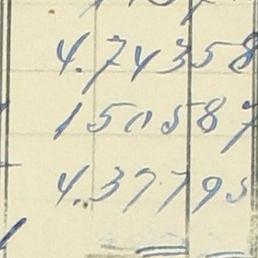 4.74358
150587
4.37795